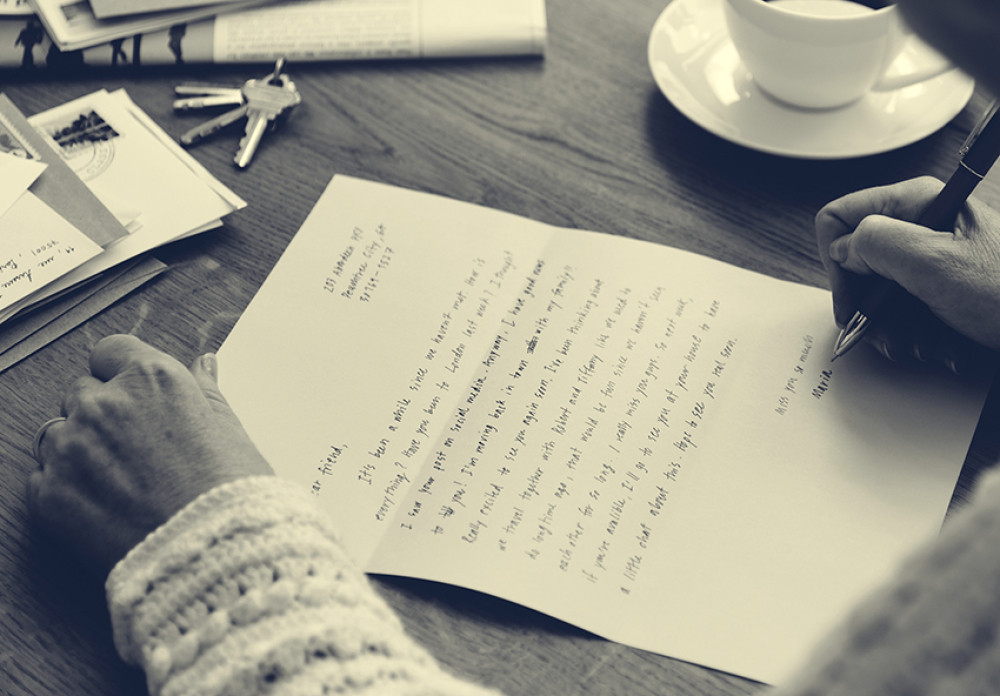 Aberdeen
Peachtree City, GA
ar friend,
It's been a while since we haven't met. How is
everything? Have you been to London last week? I thought
I saw your post on social media. Anyway, I have good news
to you! I'm moving back in town with my family!!
Really excited to see you again soon. I've been thinking about
we travel together with Robert and Tiffany like we used to
do long time ago, that would be fun since we haven't seen
each other for so long. I really miss you guys. So next week,
if you're avalible, I'll go to see you at your house to have
a little chat about this. Hope to see you real soon.
Miss you so much
Maria